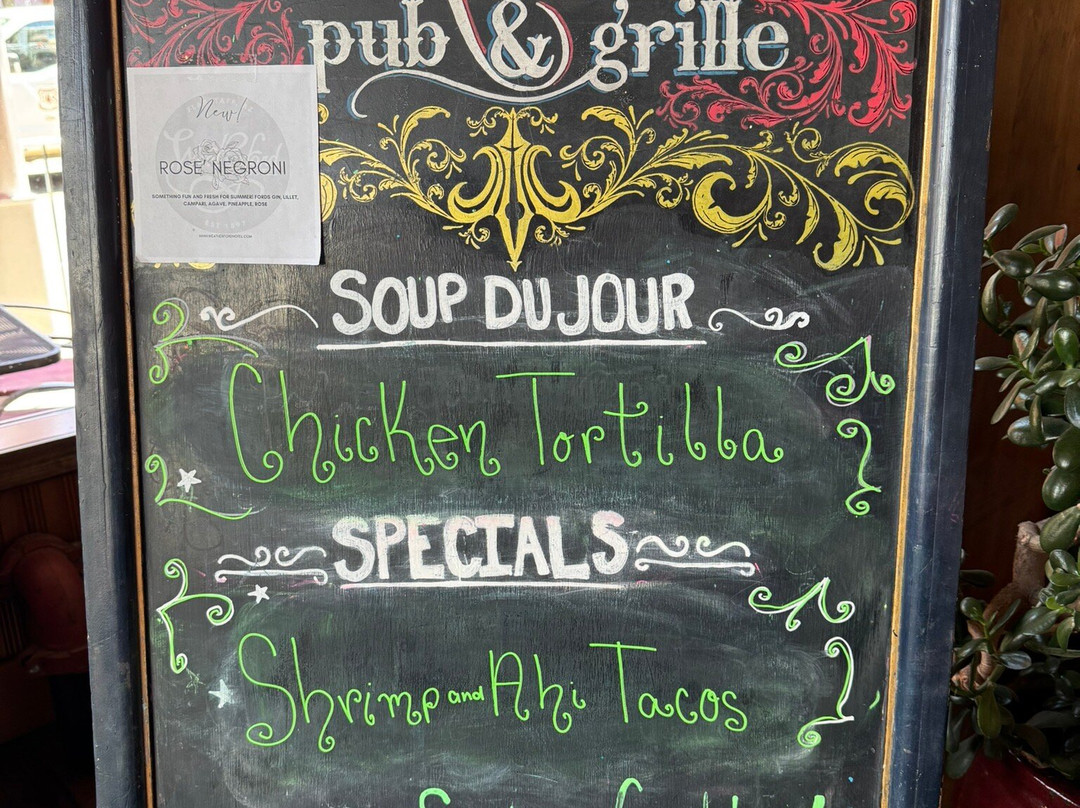 pub & grille
New!
ROSE' NEGRONI
SOMETHING FUN AND FRESH FOR SUMMER! FORDS GIN, LILLET,
CAMPARI, AGAVE, PINEAPPLE, ROSE
SOUP DU JOUR
Chicken Tortilla
SPECIALS
Shrimp and Ahi Tacos